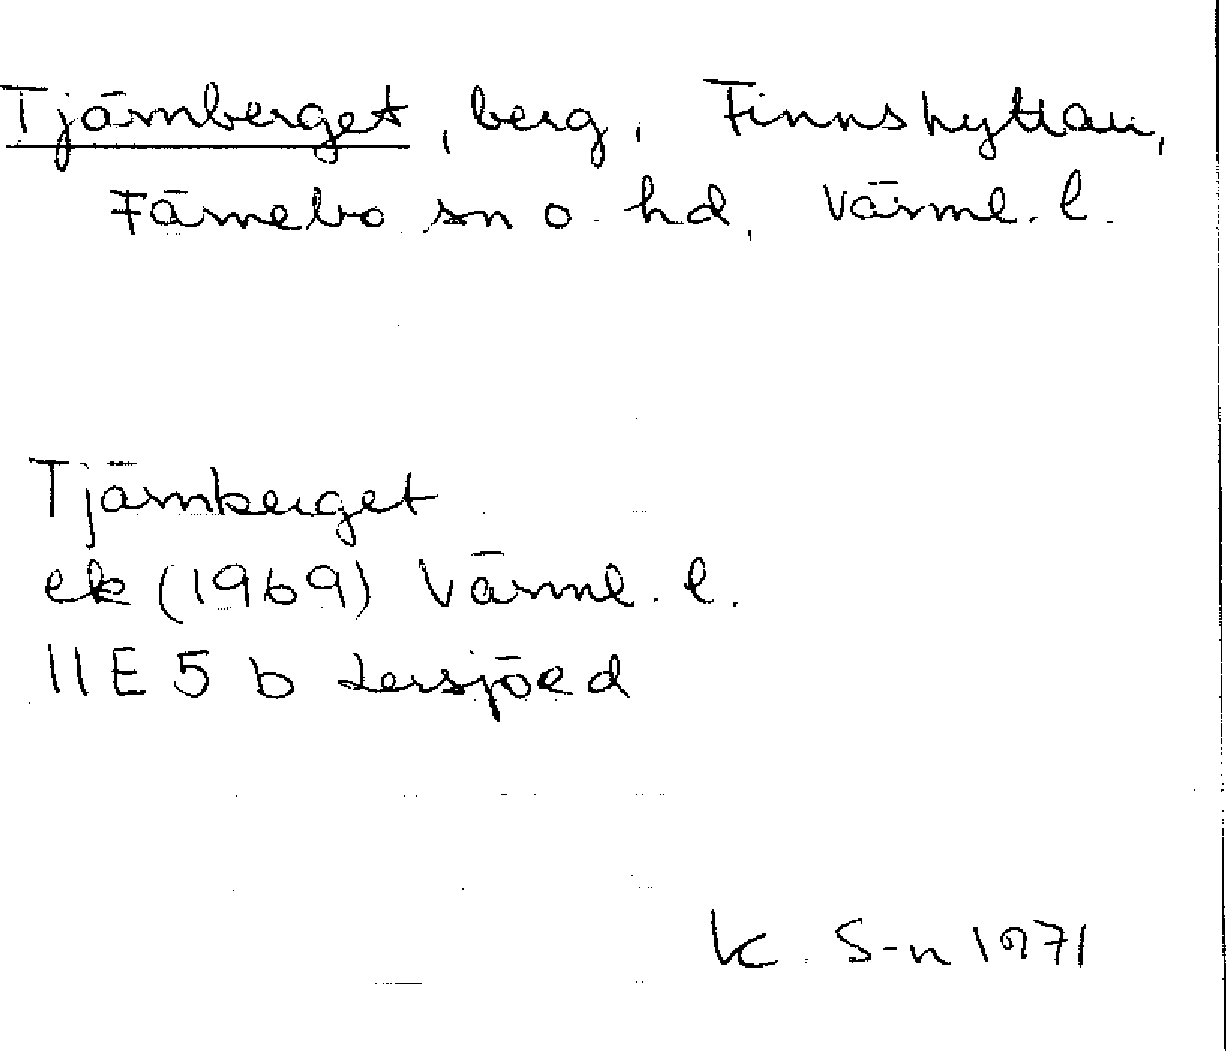 Tjärnberget, berg, Finnshyttan,
Färnebo sn o. hd, Värml. l.
Tjärnberget
ek (1969) Värml. l.
11E 5 b Lersjöed
K. S-n 1971